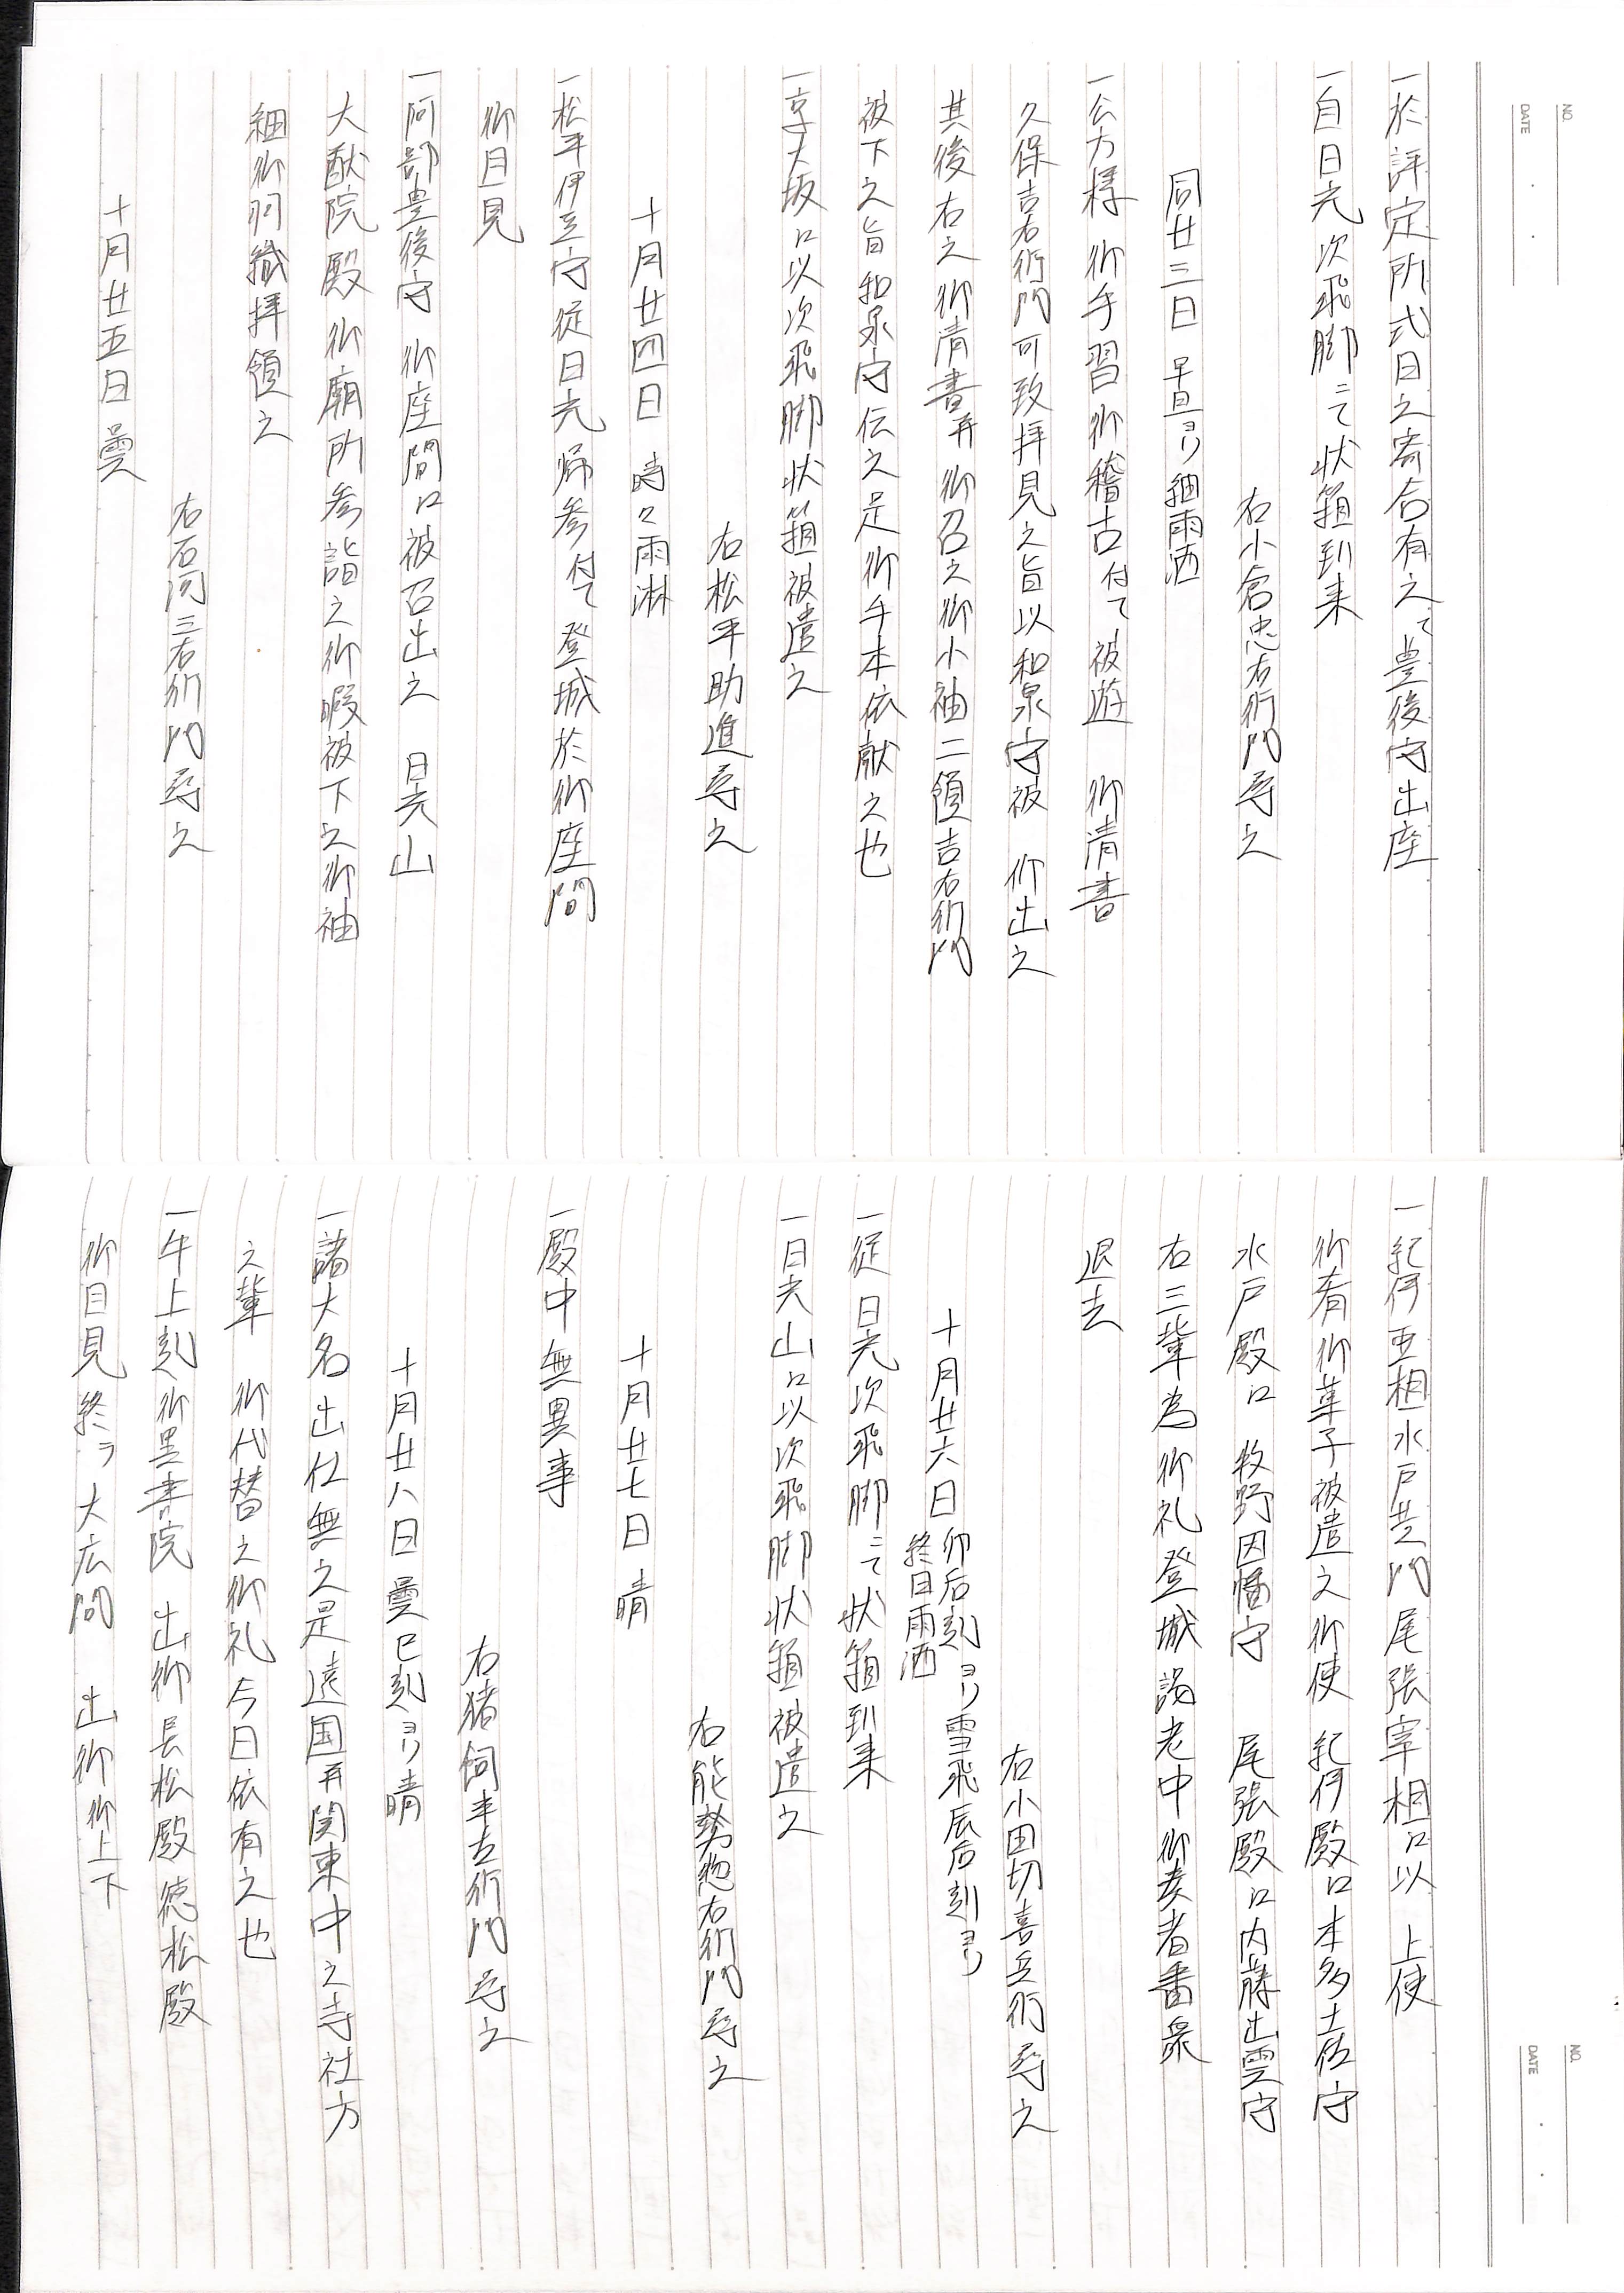 NO.
DATE
一於評定所式日之寄合有之て豊後守出座
一自日光次飛脚ニて状箱到来
右小倉忠右衛門尋之
同廿三日 早旦ヨリ細雨洒
一公方様 御手習御稽古付て被遊 御清書
久保吉右衛門可致拝見之旨以和泉守被 仰出之
其後右之御清書并御召之御小袖二領吉右衛門
被下之旨和泉守伝之是御手本依献之也
一京大坂江以次飛脚状箱被遣之
右松平助進尋之
十月廿四日 時々雨淋
一松平伊豆守従日光帰参付て登城於御座間
御目見
一阿部豊後守 御座間江被召出之 日光山
大猷院殿御廟所参詣之御暇被下之御袖
細御羽織拝領之
右石河三右衛門尋之
十月廿五日 曇
NO.
DATE
一紀伊亜相水戸黄門尾張宰相江以 上使
御肴御菓子被遣之御使 紀伊殿江本多土佐守
水戸殿江 牧野因幡守 尾張殿江内藤出雲守
右三輩為御礼登城謁老中御奏者番衆
退去
右小田切喜兵衛尋之
十月廿六日 卯后刻ヨリ雪飛辰后刻ヨリ
終日雨洒
一従日光次飛脚ニて状箱到来
一日光山江以次飛脚状箱被遣之
右能勢惣右衛門尋之
十月廿七日 晴
一殿中無異事
右猪飼半左衛門尋之
十月廿八日曇巳刻ヨリ晴
一諸大名出仕無之是遠国并関東中之寺社方
之輩 御代替之御礼今日依有之也
一午上刻御黒書院 出御長松殿徳松殿
御目見終ヲ大広間 出御御上下